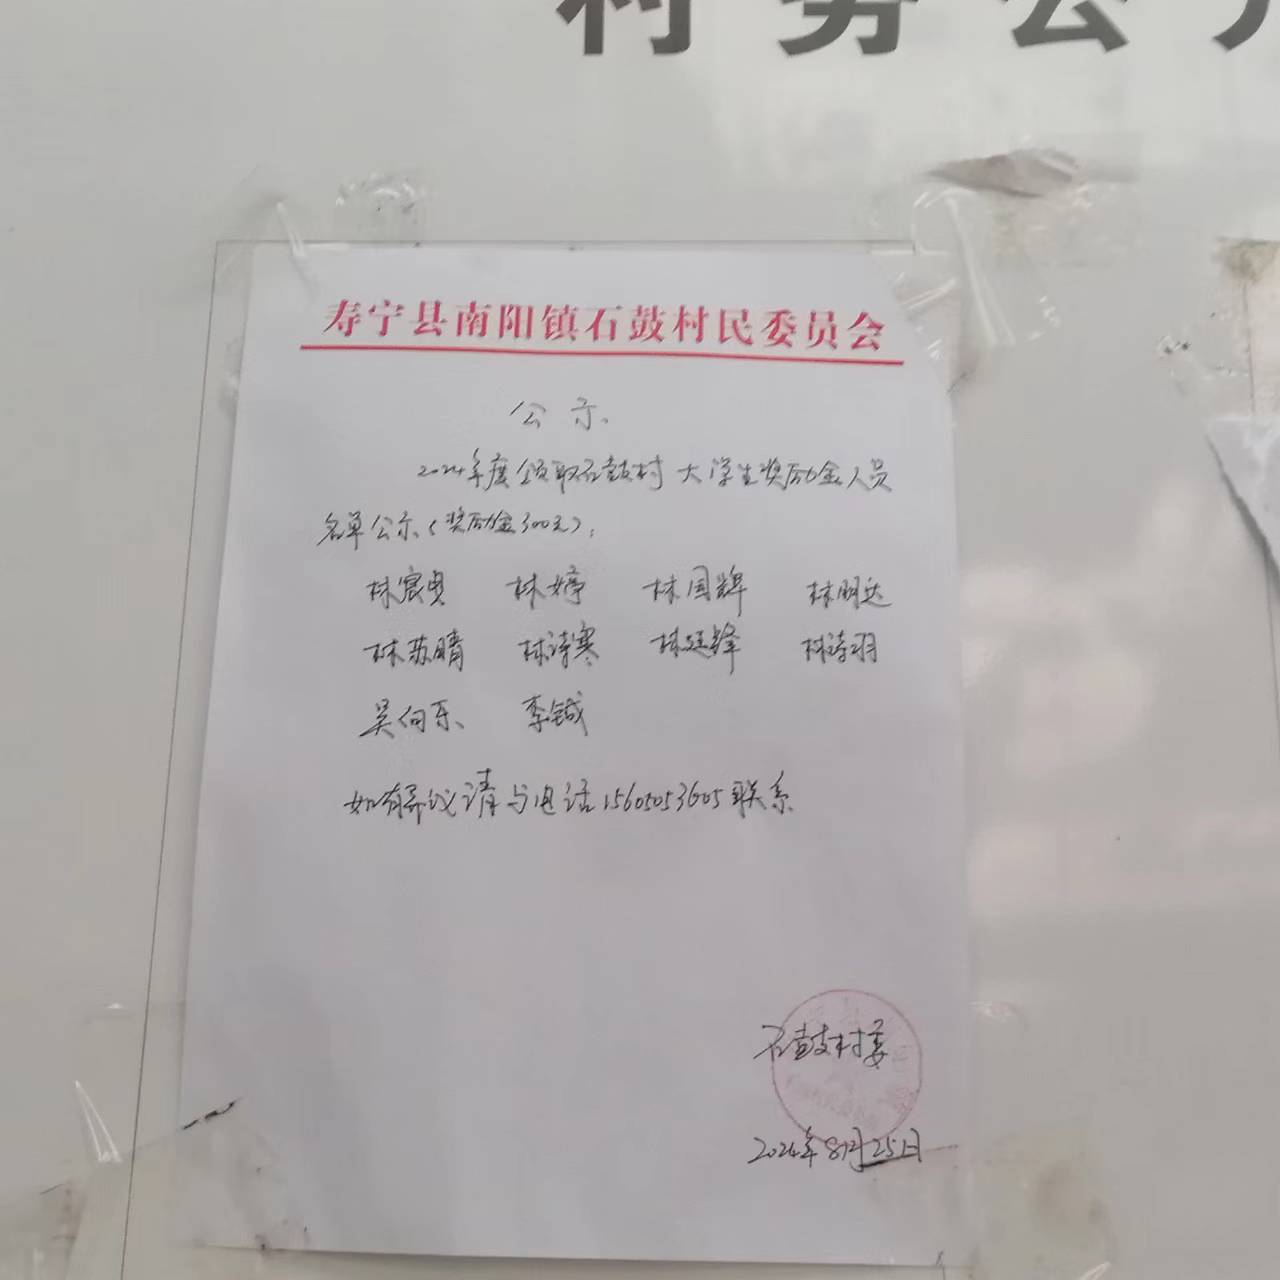 村务公开
寿宁县南阳镇石鼓村民委员会
公示
2024年度领取石鼓村大学生奖励金人员
名单公示(奖励金300元):
林宸贤 林婷 林国辉 林明达
林苏晴 林诗寒 林廷锋 林诗羽
吴向东 李铖
如有异议请与电话15605053605联系
石鼓村委
2024年8月25日